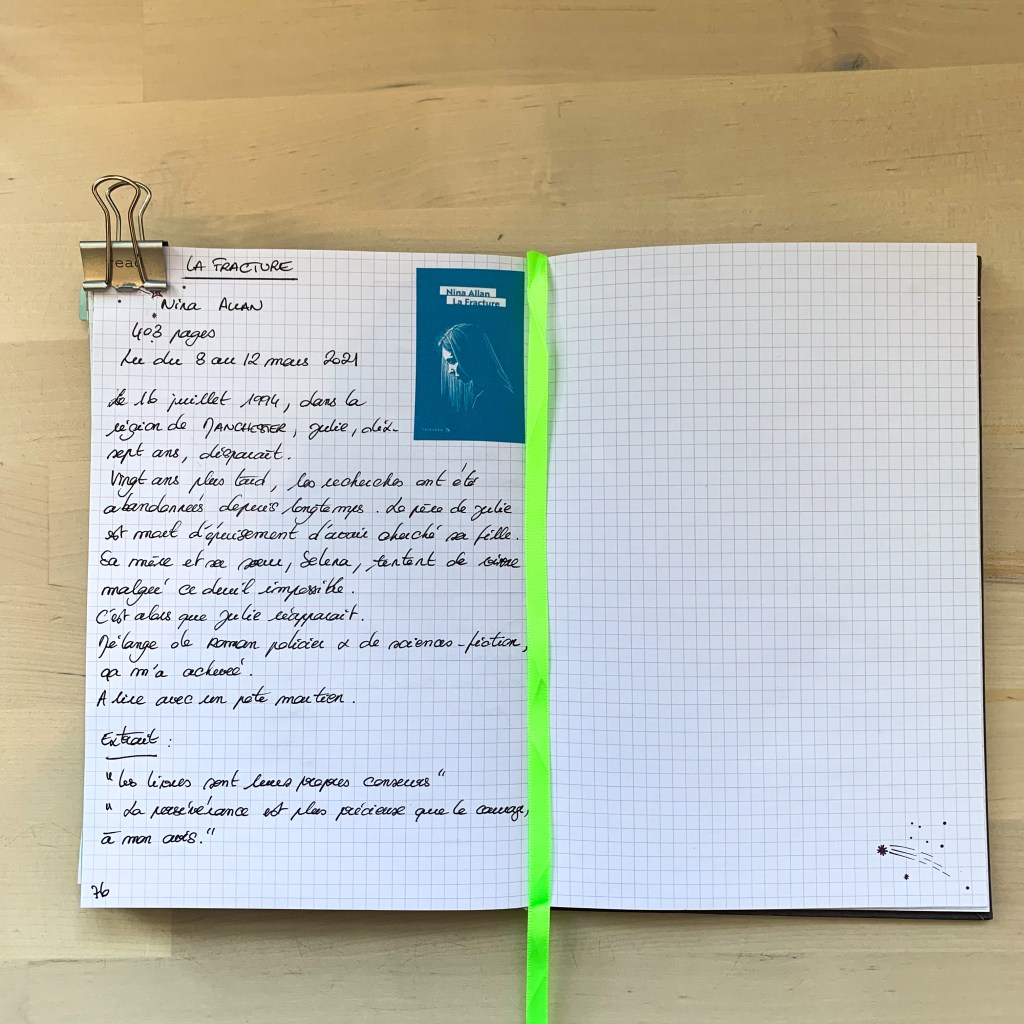 read
LA FRACTURE
Nina ALLAN
403 pages
Lu du 8 au 12 mars 2021
Nina Allan
La Fracture
Le 16 juillet 1994, dans la
région de MANCHESTER, Julie, dix-
sept ans, disparait.
Vingt ans plus tard, les recherches ont été
abandonnées depuis longtemps. Le père de Julie
est mort d'épuisement d'avoir cherché sa fille.
Sa mère et sa soeur, Selena, tentent de vivre
malgré ce deuil impossible.
C'est alors que Julie réapparait.
Mélange de roman policier & de sciences-fiction,
ça m'a achevée.
A lire avec un pote martien.
Extrait :
"Les livres sont leurs propres censeurs"
"La persévérance est plus précieuse que le courage,
à mon avis."
76